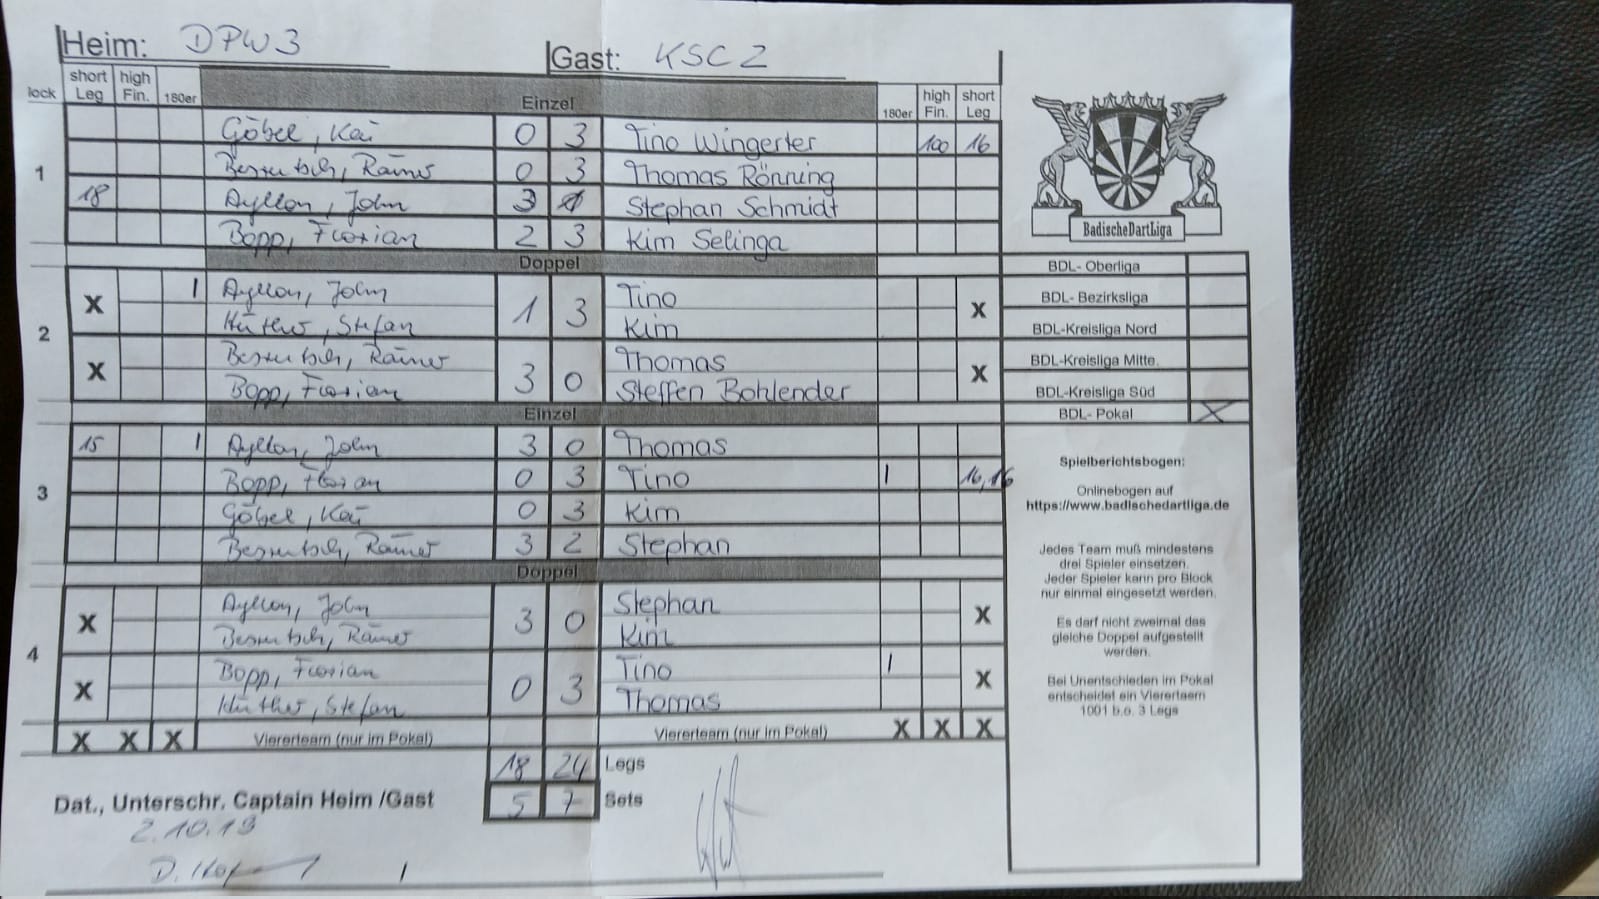 Heim: DPW3 Gast: KSC 2
lock short Leg high Fin. 180er Einzel 180er high Fin. short Leg
1
Göbel, Kai 0 3 Tino Wingerter 100 16
Rainer 0 3 Thomas Rönning
18 Ayllon, John 3 Stephan Schmidt
Bopp, Florian 2 3 Kim Selinga
Doppel
2
X 1 Ayllon, John 1 3 Tino X
Hüther, Stefan Kim
X Rainer 3 0 Thomas X
Bopp, Florian Steffen Bohlender
Einzel
3
15 1 Ayllon, John 3 0 Thomas
Bopp, Florian 0 3 Tino 1 16, 16
Göbel, Kai 0 3 Kim
Rainer 3 2 Stephan
Doppel
4
X Ayllon, John 3 0 Stephan X
Rainer Kim
X Bopp, Florian 0 3 Tino 1 X
Hüther, Stefan Thomas
X X X Viererteam (nur im Pokal) Viererteam (nur im Pokal) X X X
18 24 Legs
5 7 Sets
Dat., Unterschr. Captain Heim /Gast
2.10.19
BadischeDartLiga
BDL- Oberliga
BDL- Bezirksliga
BDL-Kreisliga Nord
BDL-Kreisliga Mitte.
BDL-Kreisliga Süd
BDL- Pokal X
Spielberichtsbogen:
Onlinebogen auf
https://www.badischedartliga.de
Jedes Team muß mindestens
drei Spieler einsetzen.
Jeder Spieler kann pro Block
nur einmal eingesetzt werden.
Es darf nicht zweimal das
gleiche Doppel aufgestellt
werden.
Bei Unentschieden im Pokal
entscheidet ein Viererteam
1001 b.o. 3 Legs